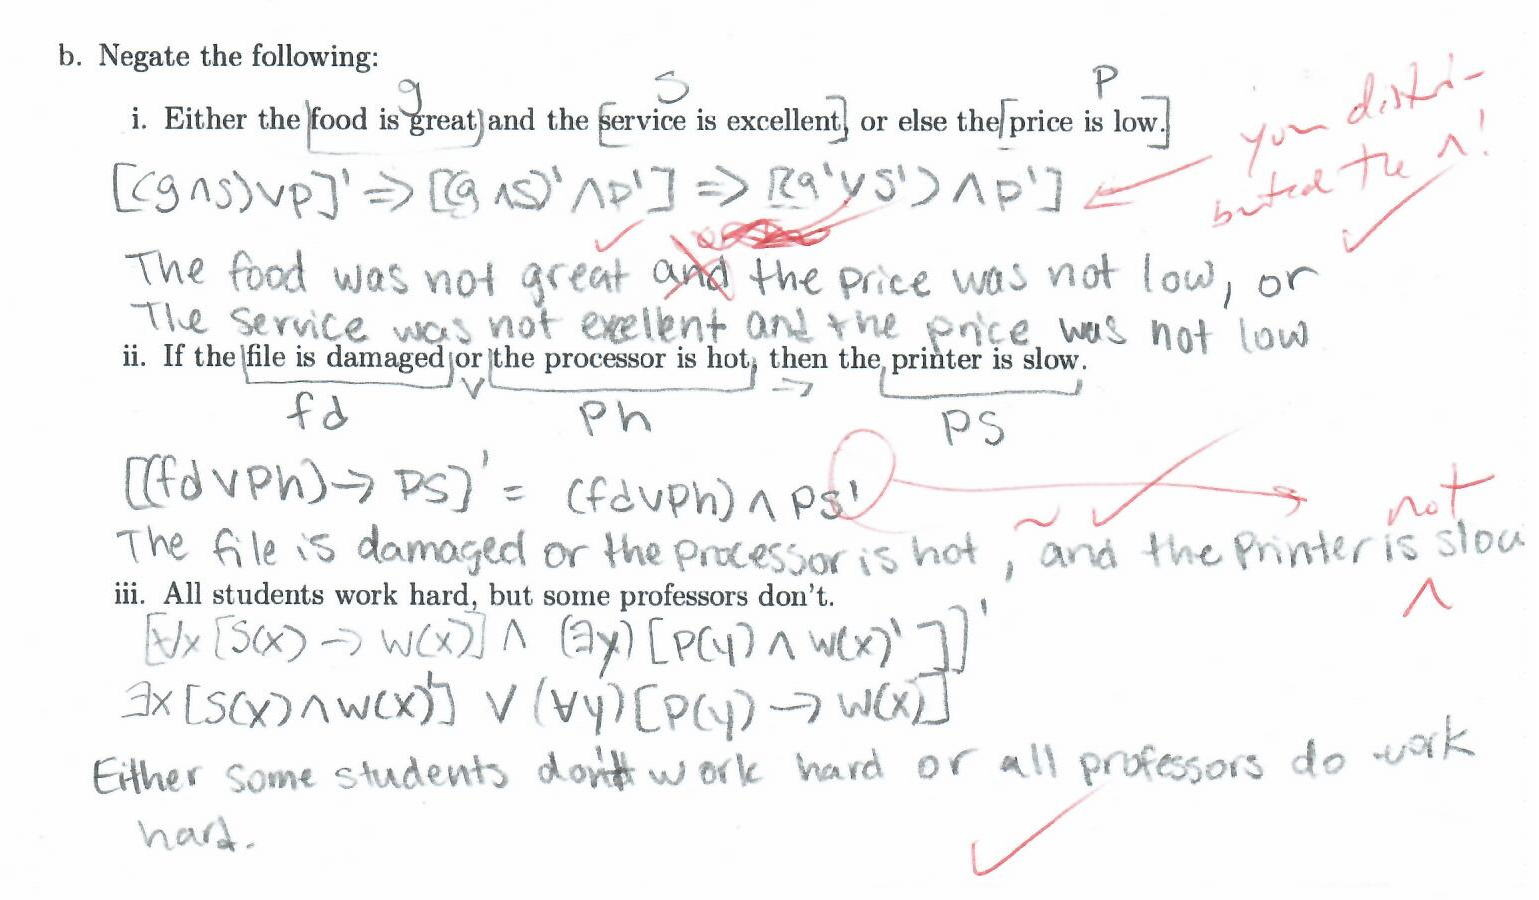 b. Negate the following:
g S P
i. Either the food is great and the service is excellent, or else the price is low.
you distri-
buted the ∧!
[(g∧s)∨p]' => [(g∧s)'∧p'] => [(g'∨s')∧p']
The food was not great and the price was not low, or
The service was not exellent and the price was not low
ii. If the file is damaged or the processor is hot, then the printer is slow.
∨ =>
fd Ph PS
[(fd∨Ph)→PS]' = (fd∨Ph)∧PS'
not
The file is damaged or the processor is hot, and the Printer is slow
iii. All students work hard, but some professors don't.
[∀x[S(x)→W(x)]∧(∃y)[P(y)∧W(x)']]'
∃x[S(x)∧W(x)']∨(∀y)[P(y)→W(x)]
Either some students don't work hard or all professors do work
hard.